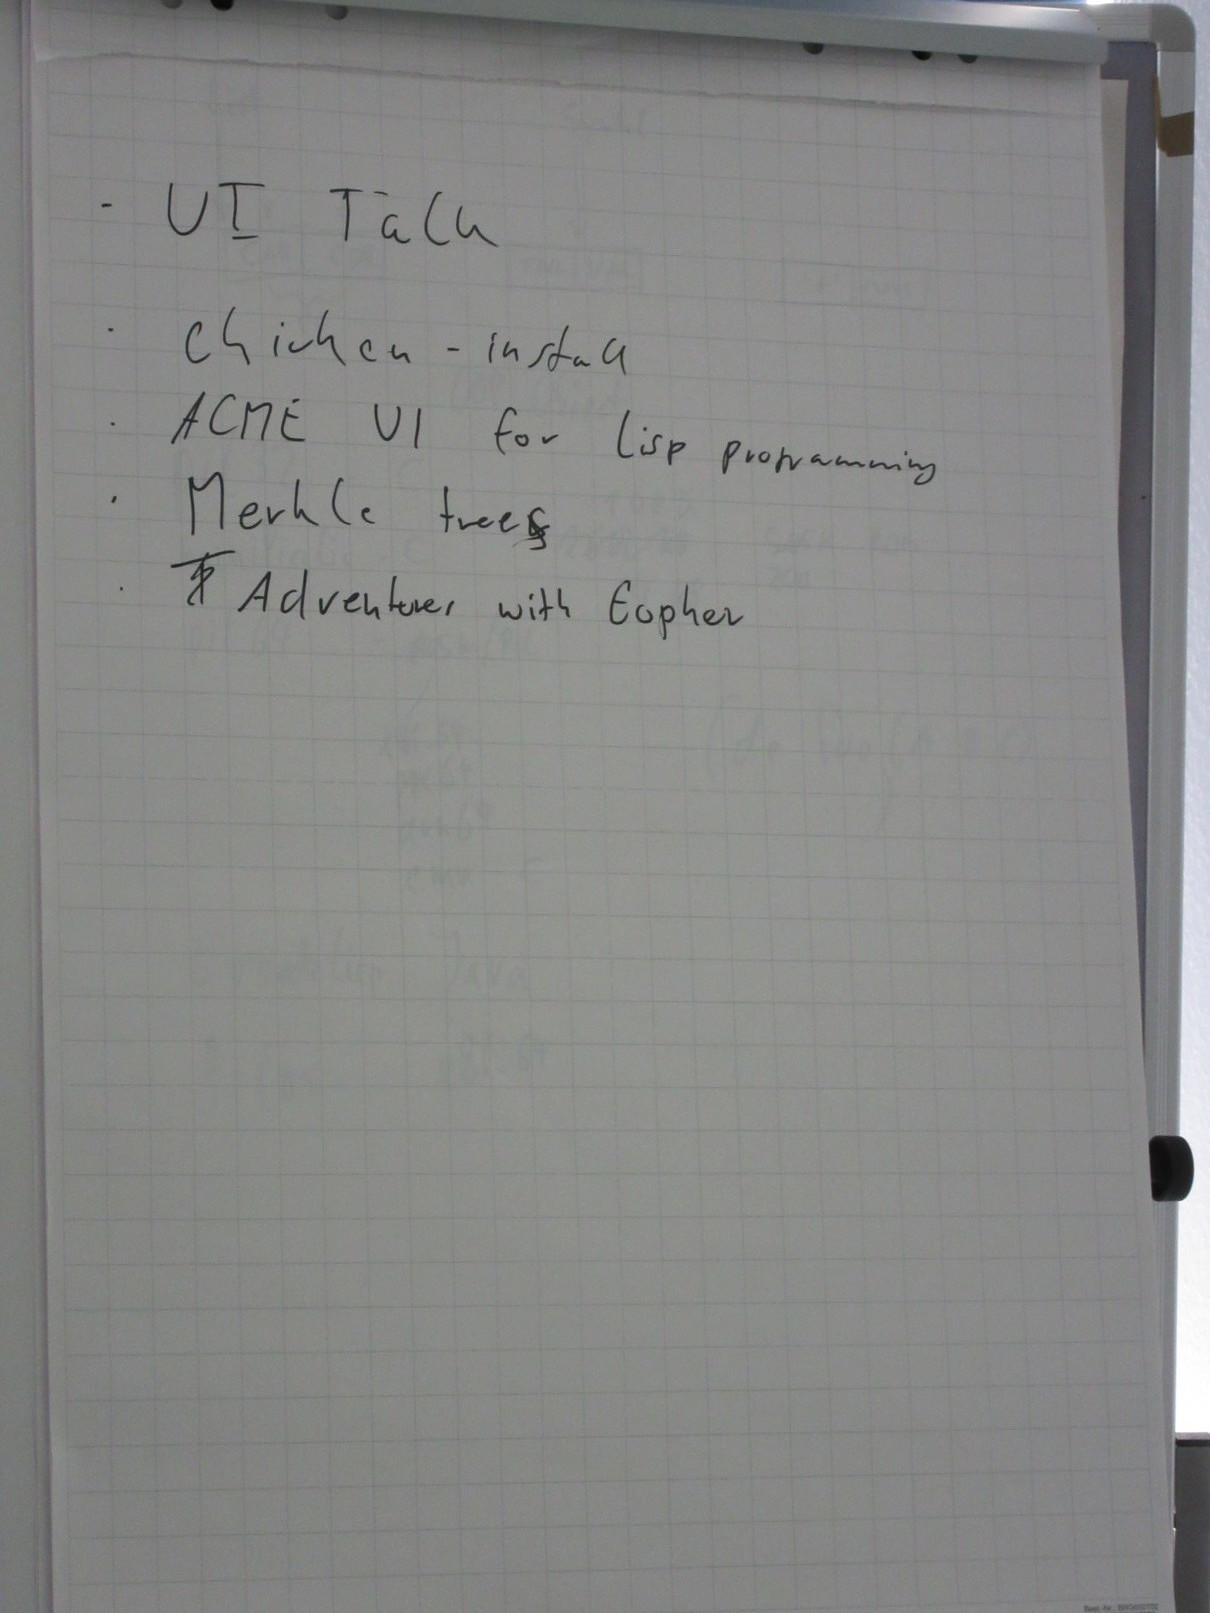 - UI Talk
· chicken-install
· ACME UI for Lisp programming
· Merkle trees
· Adventures with Gopher